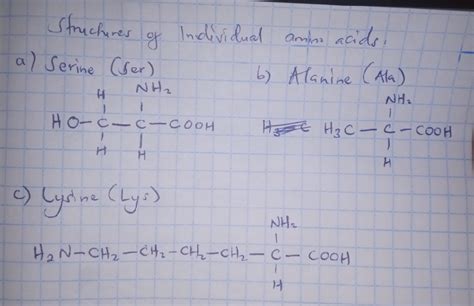 Structures of Individual amino acids.
a) Serine (Ser)
H NH₂
HO-C-C-COOH
H H
b) Alanine (Ala)
NH₂
H₃C-C-COOH
H
c) Lysine (Lys)
NH₂
H₂N-CH₂-CH₂-CH₂-CH₂-C-COOH
H